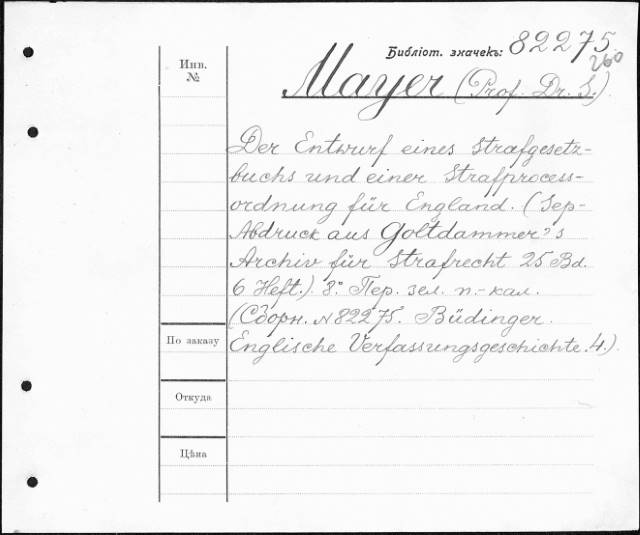 Библіот. значекъ: 82275.
260
Инв.
№
Mayer (Prof. Dr. S.)
Der Entwurf eines Strafgesetz-
buchs und einer Strafprocess-
ordnung für England. (Sep-
Abdruck aus Goltdammer's
Archiv für Strafrecht 25 Bd.
6 Heft.) 8º Пер. зел. п.-кал.
(Сборн. № 82275. Büdinger.
По заказу
Englische Verfassungsgeschichte. 4.)
Откуда
Цѣна